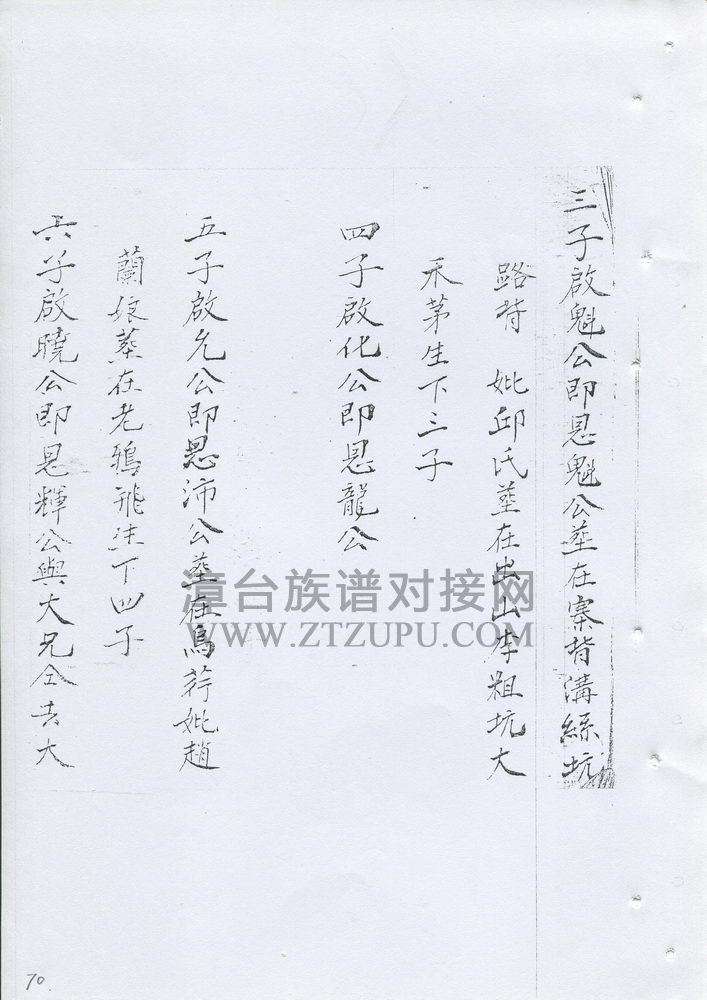 三子啟魁公即恩魁公葬在寨背溝絲坑
路背 妣邱氏葬在出山李粗坑大
禾茅生下三子
四子啟化公即恩龍公
五子啟允公即恩沛公葬在烏妣趙
蘭娘葬在老鴉飛生下四子
六子啟曉公即恩輝公與大兄仝去大
漳台族谱对接网
WWW.ZTZUPU.COM
70